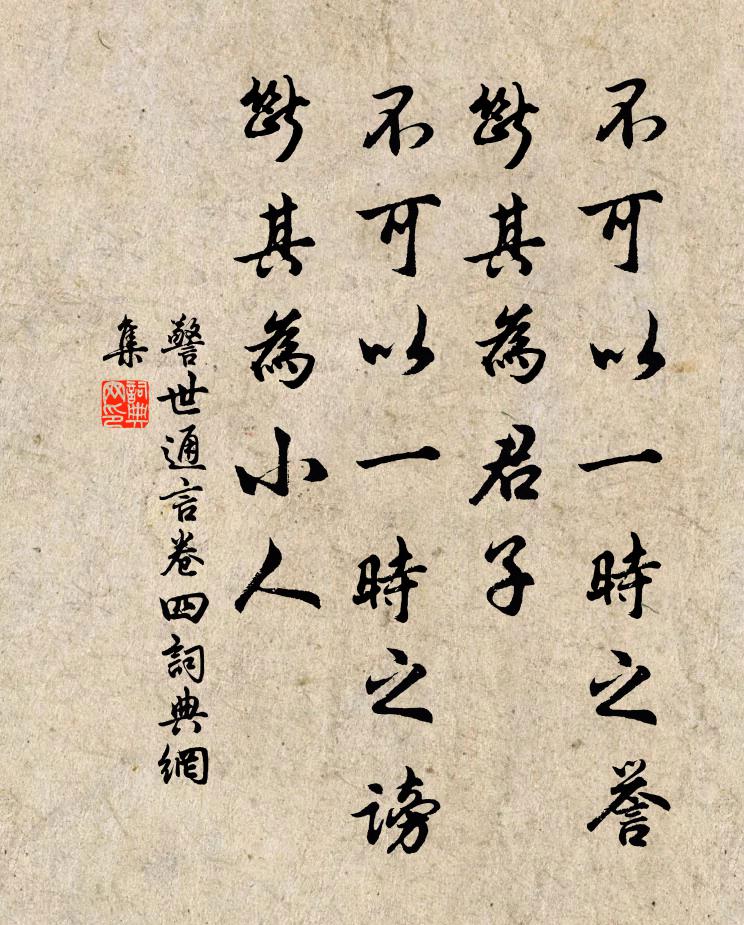 不可以一時之誉
斷其為君子
不可以一時之謗
斷其為小人
警世通言卷四詞典網
集
詞典
网印